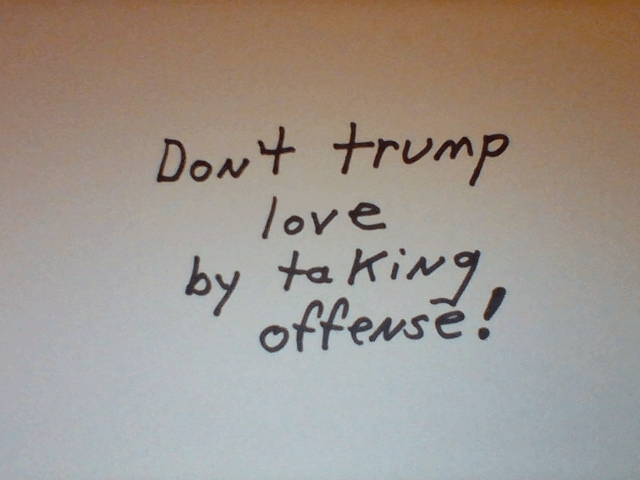 Don't trump
love
by taking
offense!